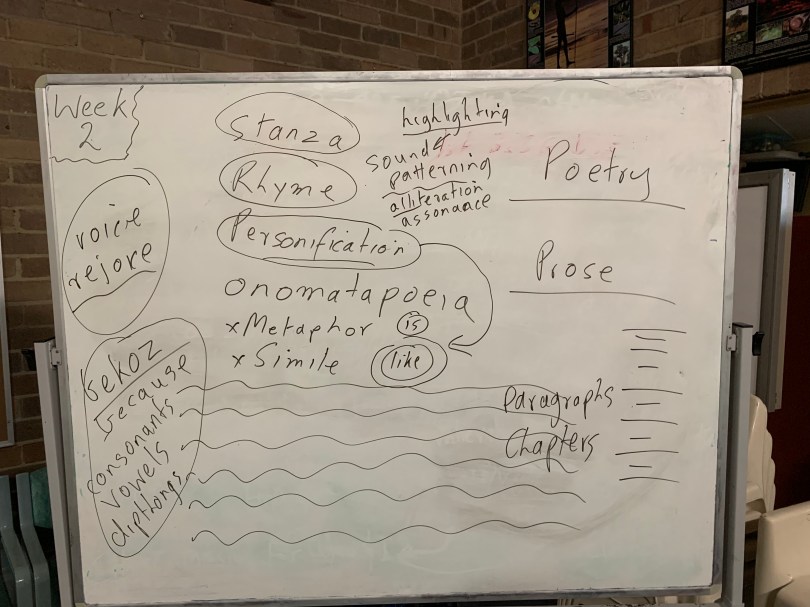 Week
2
Stanza
Rhyme
Personification
onomatapoeia
x Metaphor is
x Simile like
highlighting
sound
patterning
alliteration
assonance
Poetry
Prose
Paragraphs
Chapters
voice
rejoice
bekoz
because
consonants
vowels
dipthongs